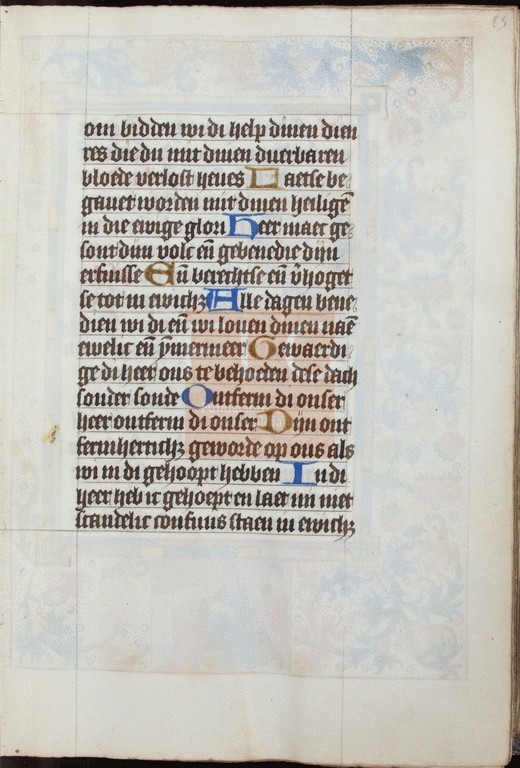 25
om bidden wi di help dinen dien
res die du mit dinen duerbaren
bloede verlost heues Laetse be
gauet worden mit dinen heiligē
in die ewige glori Heer maec ge
sont dijn volc eñ gebenedie dijn
erfnisse Eñ berechtse eñ v̄hoget
se tot in ewich₃ Alle dagen bene
dien wi di eñ wi louen dinen naē
ewelic eñ ȳmermeer Gewaerdi
ge di heer ons te behoeden dese dach
sonder sonde Ontferm di onser
heer ontferm di onser Dijn ont
fermhertich₃ geworde op ons als
wi in di gehoopt hebben In di
heer heb ic gehoept en laet mi niet
scandelic confuus staen in ewich₃